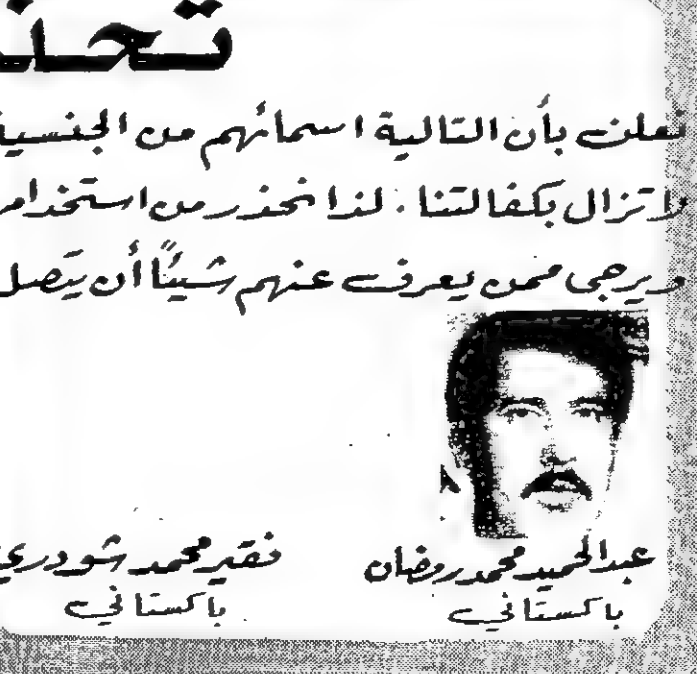 تحذ
نعلن بأن التالية اسمائهم من الجنسية
لا تزال بكفالتنا . لذا نحذر من استخدام
ويرجى ممن يعرف عنهم شيئًا أن يتصل
عبدالحميد محمد رمضان
باكستاني
فقير محمد شودري
باكستاني